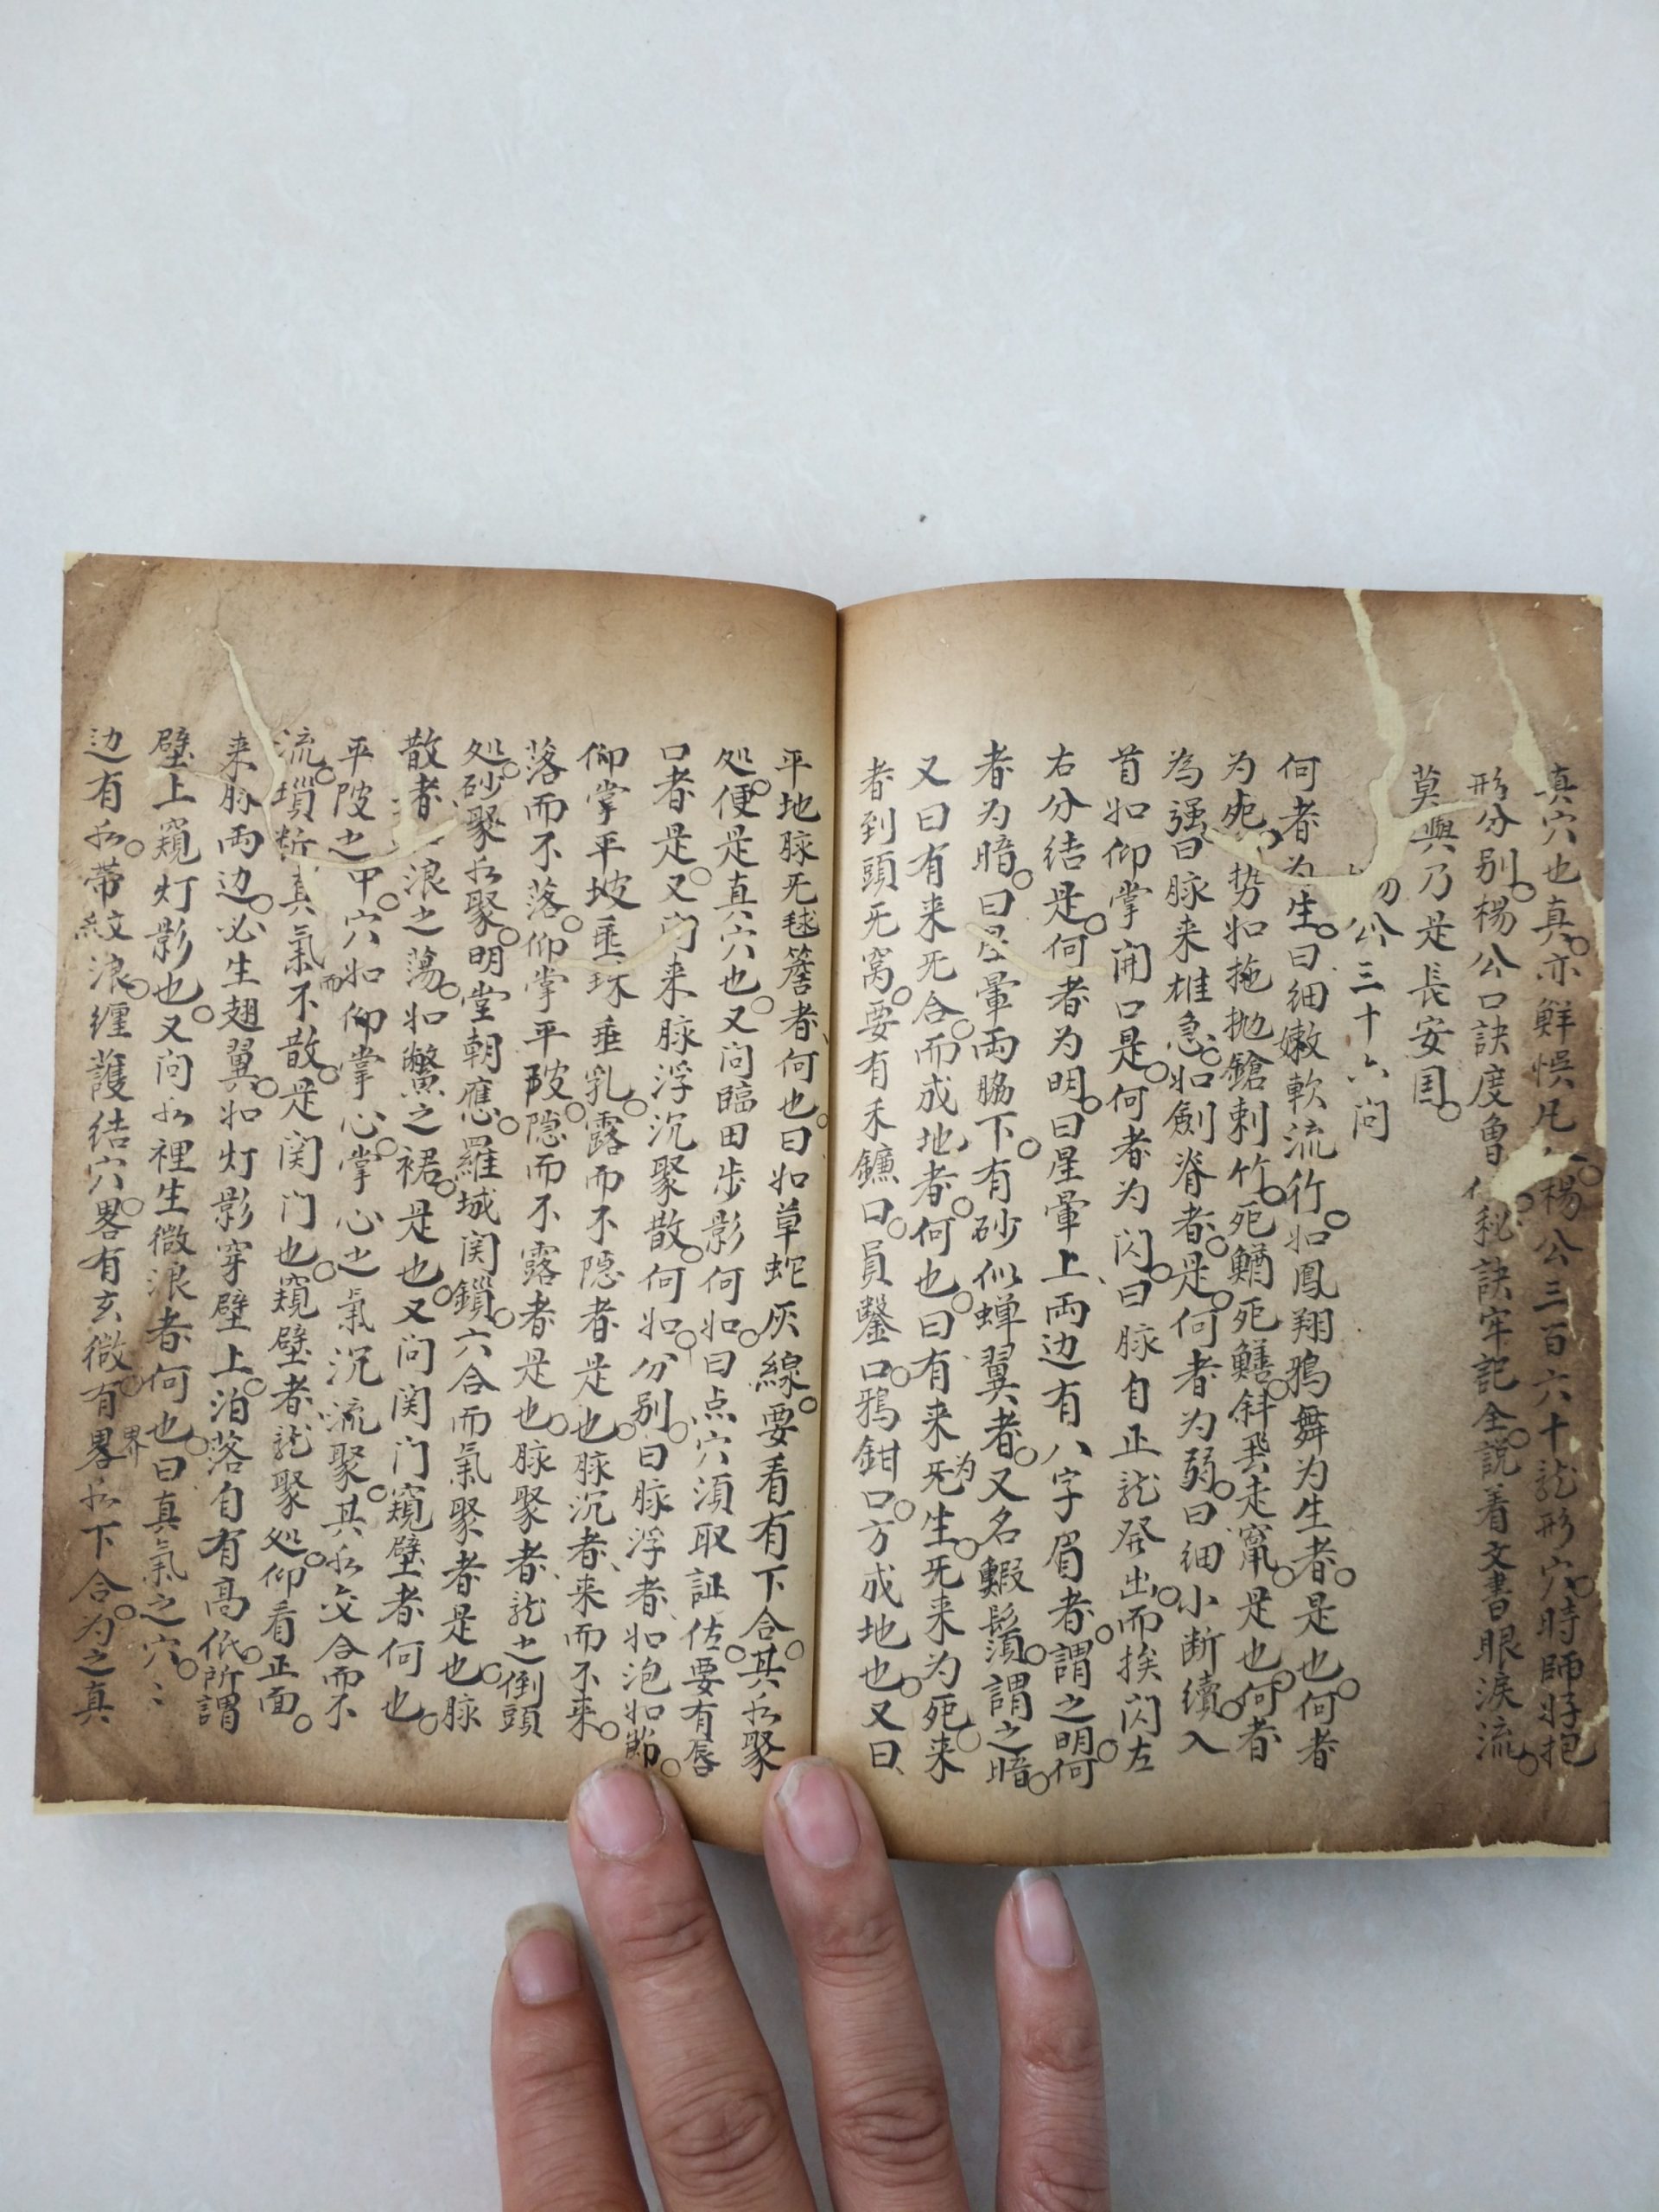 真穴也真亦鮮悞凡楊公三百六十龍形穴時師将抱
形分别楊公口訣度曾秘訣牢記全説着文書眼淚流
莫與乃是長安囯
公三十六问
何者为生曰细嫩軟流行如鳳翔鴉舞为生者是也何者
为死势如拖抛鎗刺竹死鰌死鱔斜飛走竄是也何者
為强曰脉来雄急如劍脊者是何者为弱曰细小断續入
首如仰掌開口是何者为闪曰脉自正龍發出而挨闪左
右分结是何者为明曰星暈上両边有八字眉者謂之明何
者为暗曰星暈両脇下有砂似蝉翼者又名鰕鬚謂之暗
又曰有来旡合而成地者何也曰有来旡为生旡来为死来
者到頭旡窝要有禾鐮口員鏨口鴉鉗口方成地也又曰
平地脉旡毬簷者何也曰如草蛇灰線要看有下合其水聚
処便是真穴也又问臨田步影何如曰点穴須取証佐要有唇
口者是又问来脉浮沉聚散何如分别曰脉浮者如泡如節
仰掌平坡垂珠垂乳露而不隠者是也脉沉者来而不来
落而不落仰掌平陂隠而不露者是也脉聚者龍之倒頭
処砂聚水聚明堂朝應羅城関鎖六合而氣聚者是也脉
散者浪之蕩如鱉之裙是也又问関门窺壁者何也
平陂之中穴如仰掌心掌心之氣沉流聚其水交合而不
流瑣断真氣不而散是関门也窺壁者龍聚処仰看正面
来脉両边必生翅翼如灯影穿壁上泊落自有高低所謂
壁上窺灯影也又问水裡生微浪者何也曰真氣之穴〻
边有水帶紋浪缠護结穴畧有玄微有畧界水下合为之真